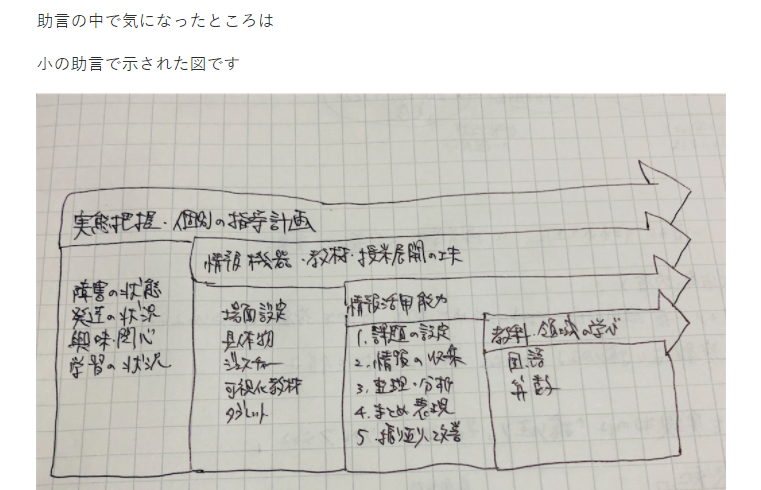 助言の中で気になったところは
小の助言で示された図です
実態把握・個別の指導計画
情報機器・教材・授業展開の工夫
情報活用能力
教科・領域の学び
障害の状態
発達の状況
興味・関心
学習の状況
場面設定
具体物
ジェスチャー
可視化教材
タブレット
1. 課題の設定
2. 情報の収集
3. 整理・分析
4. まとめ表現
5. 振り返り、改善
国語
算数